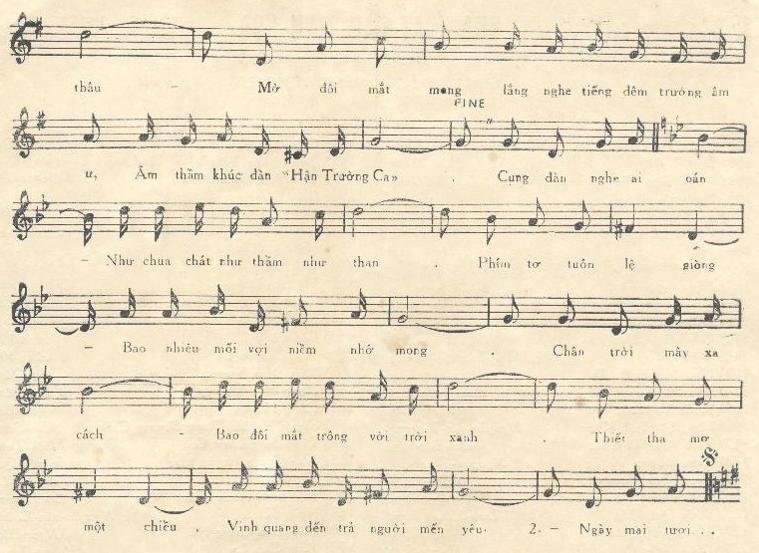 thâu - Mờ đôi mắt mong lắng nghe tiếng đêm trường âm
FINE
u, Âm thầm khúc đàn “Hận Trường Ca» . Cung đàn nghe ai oán
- Như chua chát như thầm như than . Phím tơ tuôn lệ giòng
- Bao nhiêu mối vợi niềm nhớ mong . Chân trời mây xa
cách - Bao đôi mắt trông vời trời xanh . Thiết tha mơ
một chiều . Vinh quang đến trả người mến yêu. 2. - Ngày mai tươi...